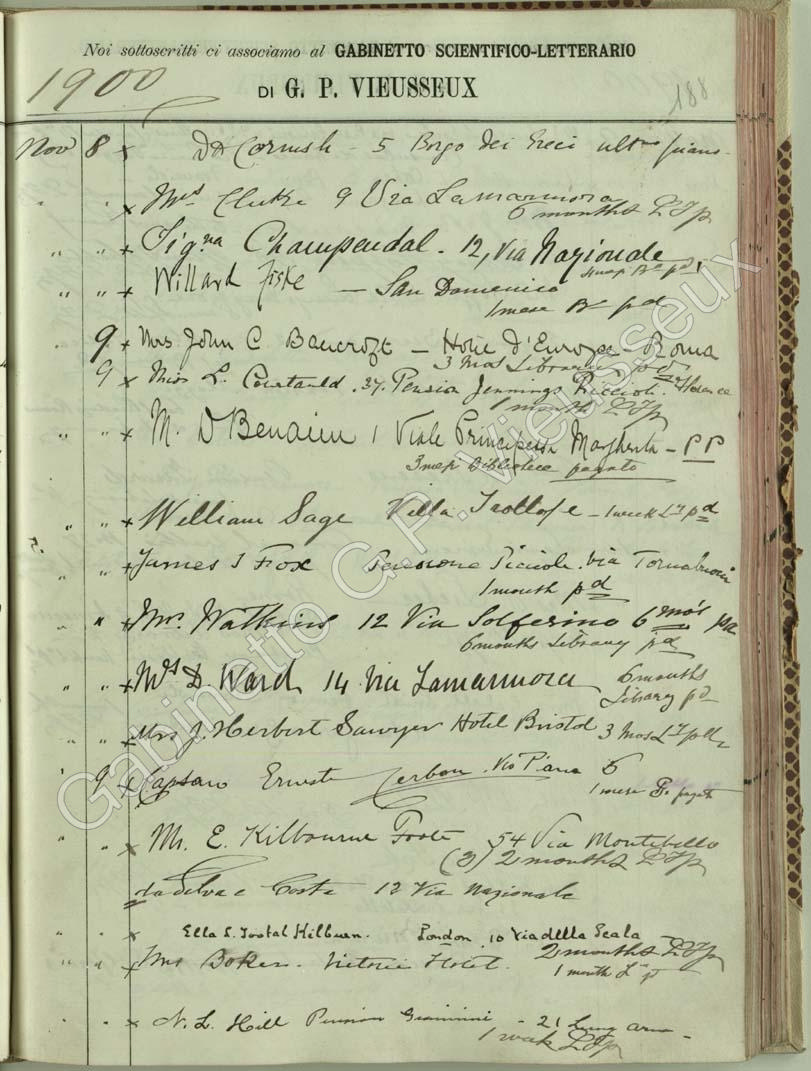 Noi sottoscritti ci associamo al GABINETTO SCIENTIFICO-LETTERARIO
DI G. P. VIEUSSEUX
1900
188
Nov 8 x Dr Cornish - 5 Borgo dei Greci
" " x Mrs Clarke 9 Via Lamarmora
6 months
" " x Sigra Champendal - 12, Via Nazionale
" " x Willard Fiske - San Domenico
1 mese pd
9 x Mrs John C Bancroft - Hotel d'Europe - Roma
3 Mos Library pd
9 x Miss L. Courtauld. 37. Pension Jennings Riccioli. Florence
1 month
" " x M. D Benaim 1 Viale Principessa Margherita - PP
pagato
" " x William Sage Villa Trollope - 1 week pd
" " x James J Fox via Tornabuoni
1 month pd
" x Mrs. Watkins 12 Via Solferino 6 mos
6 months Library pd
" " x Mrs D. Ward 14 Via Lamarmora 6 months
Library pd
" " x Mrs J. Herbert Sawyer Hotel Bristol 3 Mos
" 9 x Ernesto Via Piana 6
1 mese pagato
" " x Mr. E. Kilbourne Foote 54 Via Montebello
(3) 2 months
da Selva e Costa 12 Via Nazionale
" " x Ella S. Tostal Kilburn. London. 10 Via della Scala
2 months
" " x Mrs Baker. Victoria Hotel.
1 month
" " x N. L. Hill Pension Giannini - 21 Lung arno -
1 week
Gabinetto G.P. Vieusseux